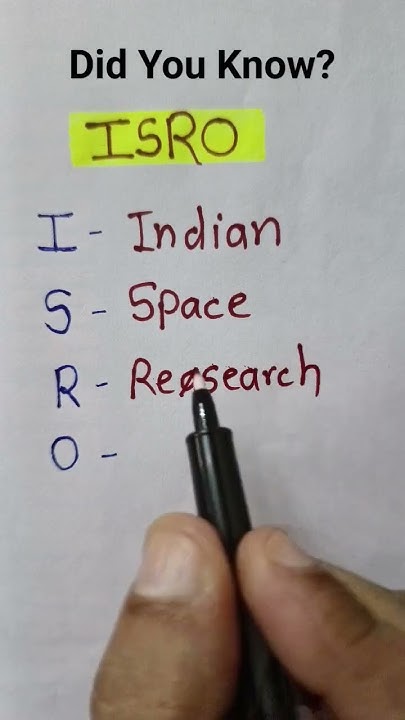 Did You Know?
ISRO
I - Indian
S - Space
R - Research
O -